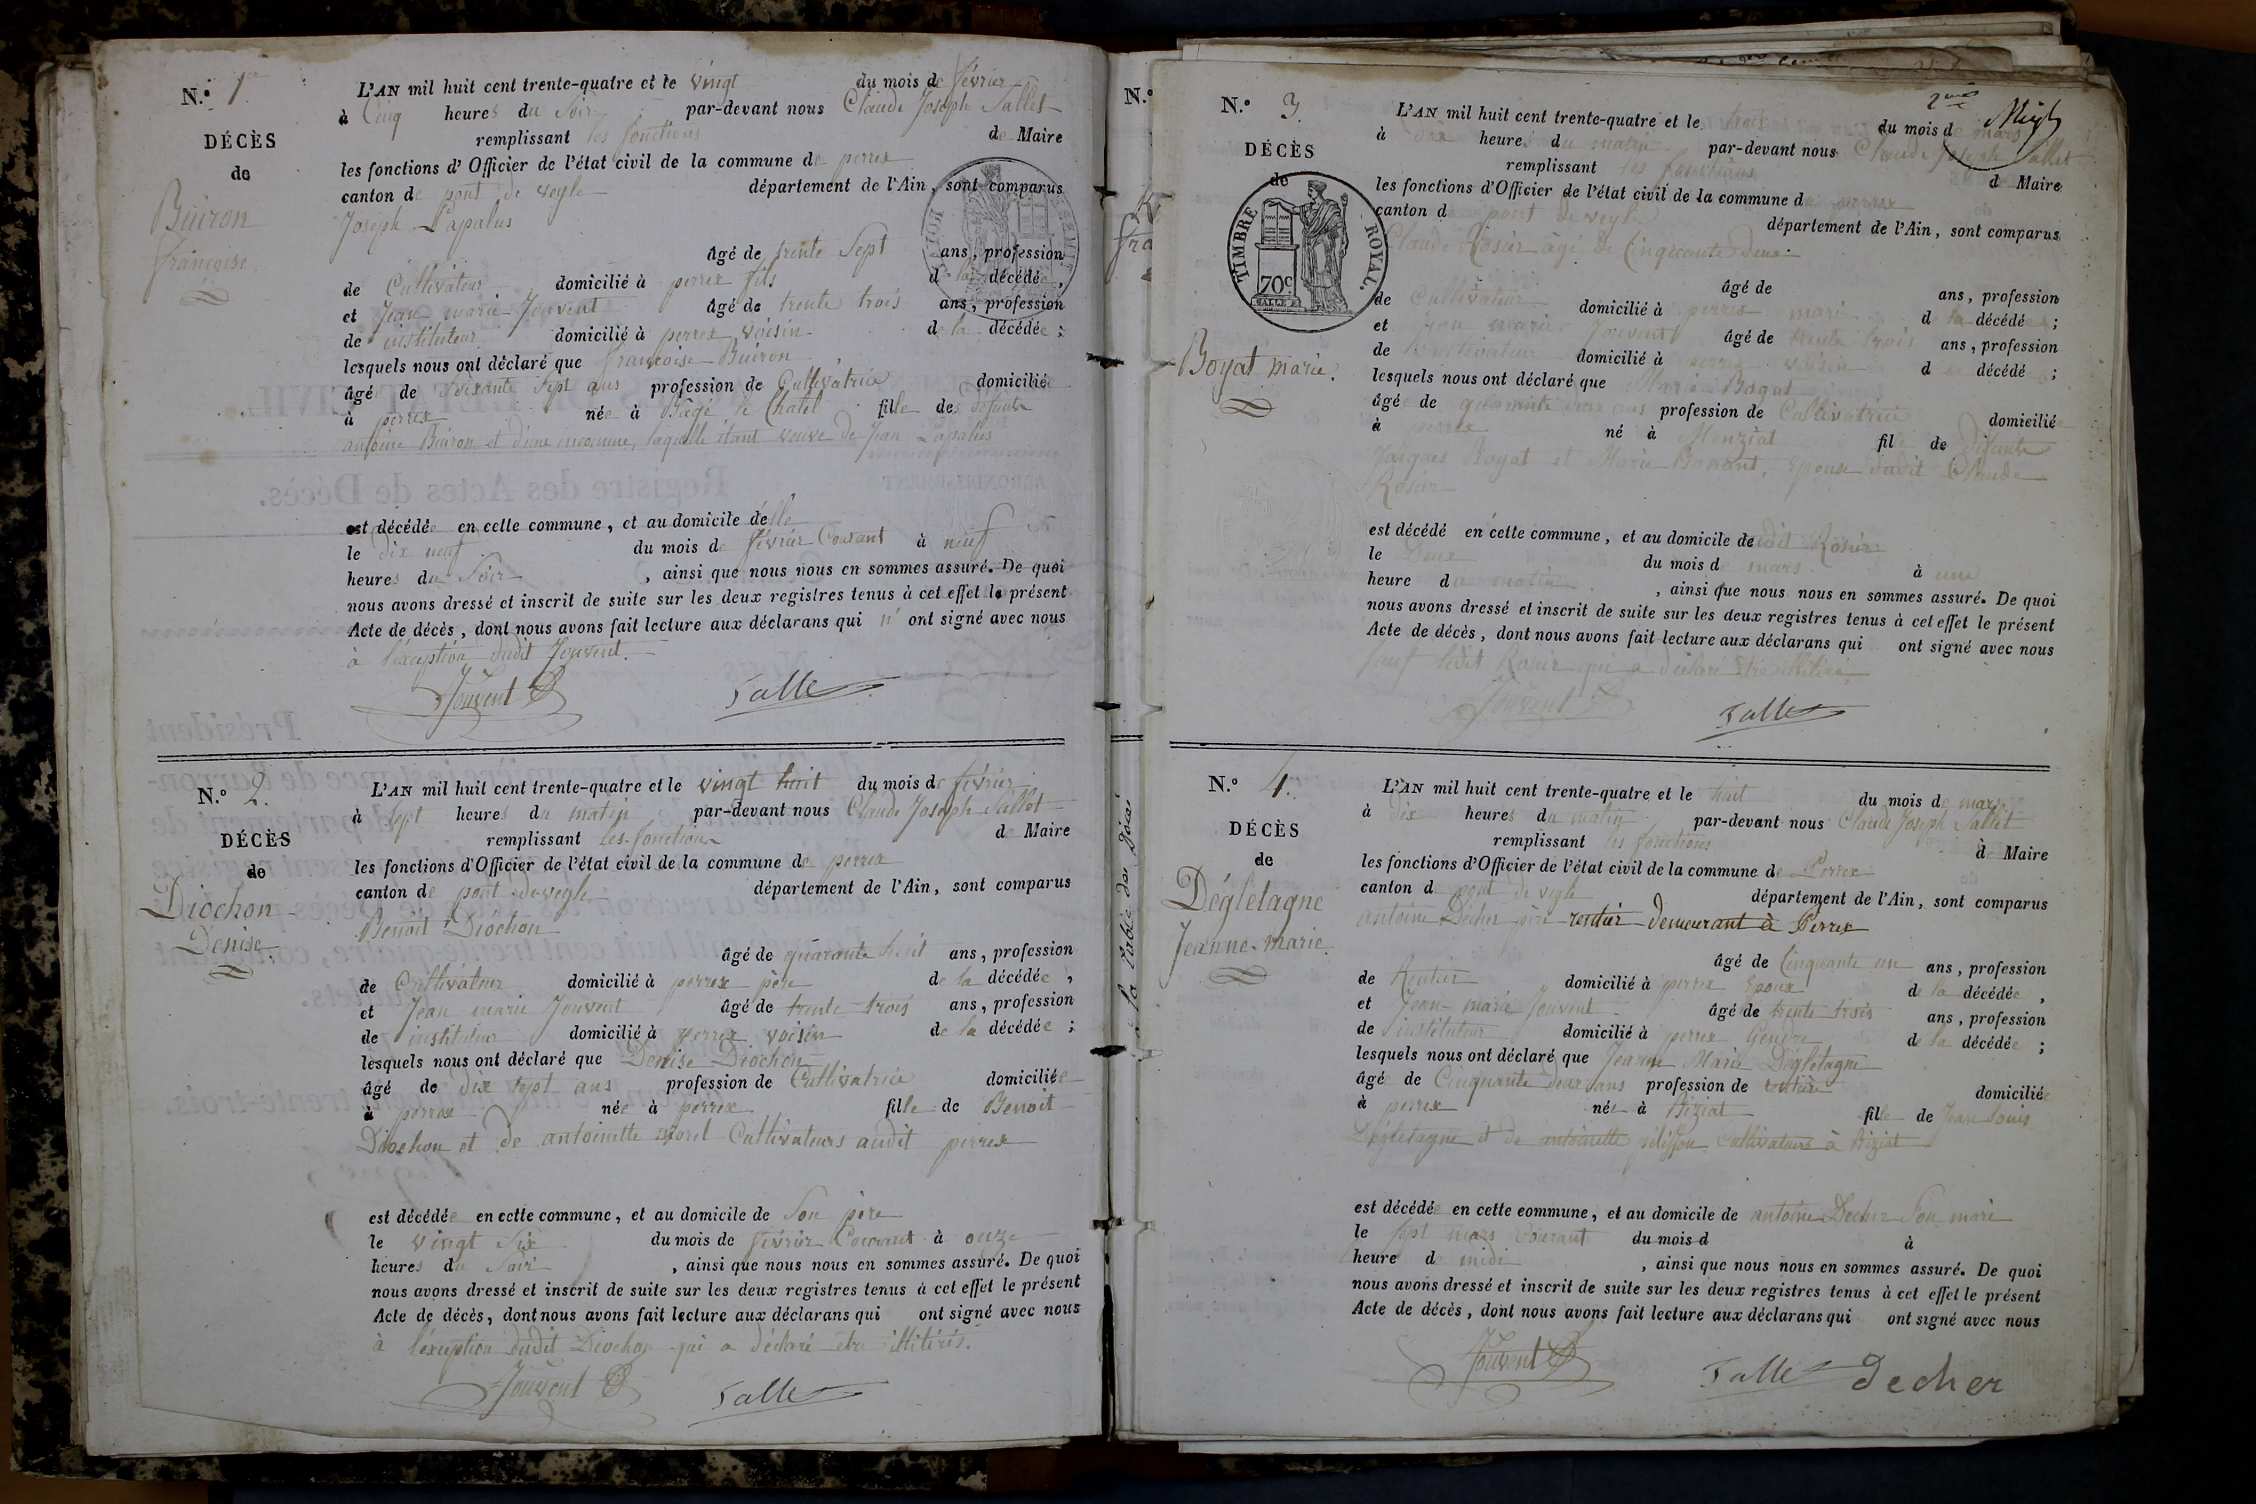 N.° 1
DÉCÈS
de
Buiron
françoise
L'AN mil huit cent trente-quatre et le vingt du mois de février
à Cinq heures du Soir par-devant nous Claude Joseph Sallet
remplissant les fonctions de Maire
les fonctions d'Officier de l'état civil de la commune de perrex
canton de pont de veyle département de l'Ain, sont comparus
Joseph Lapalus
âgé de trente Sept ans, profession
de Cultivateur domicilié à perrex fils de la décédée,
et Jean marie Jouvent âgé de trente trois ans, profession
de instituteur domicilié à perrex voisin de la décédée ;
lesquels nous ont déclaré que françoise Buiron
âgé de Soixante Sept ans profession de Cultivatrice domiciliée
à perrex née à Bâgé le Chatel fille de défunts
antoine Buiron et d'une inconnue, laquelle étant veuve de Jean Lapalus
est décédée en cette commune, et au domicile d'elle
le dix neuf du mois de février Courant à neuf
heures du Soir, ainsi que nous nous en sommes assuré. De quoi
nous avons dressé et inscrit de suite sur les deux registres tenus à cet effet le présent
Acte de décès, dont nous avons fait lecture aux déclarans qui n' ont signé avec nous
à l'exception dudit Jouvent.
Jouvent Salle
N.° 2.
DÉCÈS
de
Diochon
Denise
L'AN mil huit cent trente-quatre et le vingt huit du mois de février
à Sept heures du matin par-devant nous Claude Joseph Sallet
remplissant les fonctions de Maire
les fonctions d'Officier de l'état civil de la commune de perrex
canton de pont de veyle département de l'Ain, sont comparus
Benoit Diochon
âgé de quarante huit ans, profession
de Cultivateur domicilié à perrex père de la décédée,
et Jean marie Jouvent âgé de trente trois ans, profession
de instituteur domicilié à perrex voisin de la décédée ;
lesquels nous ont déclaré que Denise Diochon
âgé de dix sept ans profession de Cultivatrice domiciliée
à perrex née à perrex fille de Benoit
Diochon et de antoinette morel Cultivateurs audit perrex
est décédée en cette commune, et au domicile de Son père
le vingt Six du mois de février Courant à onze
heures du Soir, ainsi que nous nous en sommes assuré. De quoi
nous avons dressé et inscrit de suite sur les deux registres tenus à cet effet le présent
Acte de décès, dont nous avons fait lecture aux déclarans qui ont signé avec nous
à l'exception dudit Diochon qui a déclaré être illitéré.
Jouvent Salle
la table des Décès
2
N.° 3.
DÉCÈS
de
TIMBRE ROYAL.
70c
Boyat marie.
L'AN mil huit cent trente-quatre et le trois du mois de mars
à dix heures du matin par-devant nous Claude Joseph Sallet
remplissant les fonctions d Maire
les fonctions d'Officier de l'état civil de la commune de perrex
canton d pont de veyle département de l'Ain, sont comparus
Claude Rosier âgé de Cinquante deux
âgé de ans, profession
de Cultivateur domicilié à perrex mari d la décédé ;
et Jean marie Jouvent âgé de trente trois ans, profession
de domicilié à perrex voisin d décédé ;
lesquels nous ont déclaré que Marie Boyat
âgé de quarante deux ans profession de Cultivatrice domicilié
à perrex né à Manziat fil de défunts
Jacques Boyat et Marie Épouse dudit Claude
Rosier
est décédé en cette commune, et au domicile dudit Rosier
le Deux du mois d mars à une
heure du matin, ainsi que nous nous en sommes assuré. De quoi
nous avons dressé et inscrit de suite sur les deux registres tenus à cet effet le présent
Acte de décès, dont nous avons fait lecture aux déclarans qui ont signé avec nous
Sauf ledit Rosier qui a déclaré être illitéré
Jouvent Salle
N.° 4.
DÉCÈS
de
Dégletagne
Jeanne-marie.
L'AN mil huit cent trente-quatre et le huit du mois de mars
à dix heures du matin par-devant nous Claude Joseph Sallet
remplissant les fonctions d Maire
les fonctions d'Officier de l'état civil de la commune de Perrex
canton d pont de veyle département de l'Ain, sont comparus
antoine Decher père rentier demeurant à Perrex
âgé de Cinquante un ans, profession
de Rentier domicilié à perrex Epoux de la décédée,
et Jean marie Jouvent âgé de trente trois ans, profession
de instituteur domicilié à perrex Gendre de la décédée ;
lesquels nous ont déclaré que Jeanne Marie Dégletagne
âgé de Cinquante deux ans profession de domiciliée
à perrex née à Biziat fille de Jean Louis
Dégletagne et de antoinette Cultivateurs à Biziat
est décédée en cette commune, et au domicile de antoine Decher Son mari
le Sept mars Courant du mois d à
heure d midi, ainsi que nous nous en sommes assuré. De quoi
nous avons dressé et inscrit de suite sur les deux registres tenus à cet effet le présent
Acte de décès, dont nous avons fait lecture aux déclarans qui ont signé avec nous
Jouvent Salle Decher